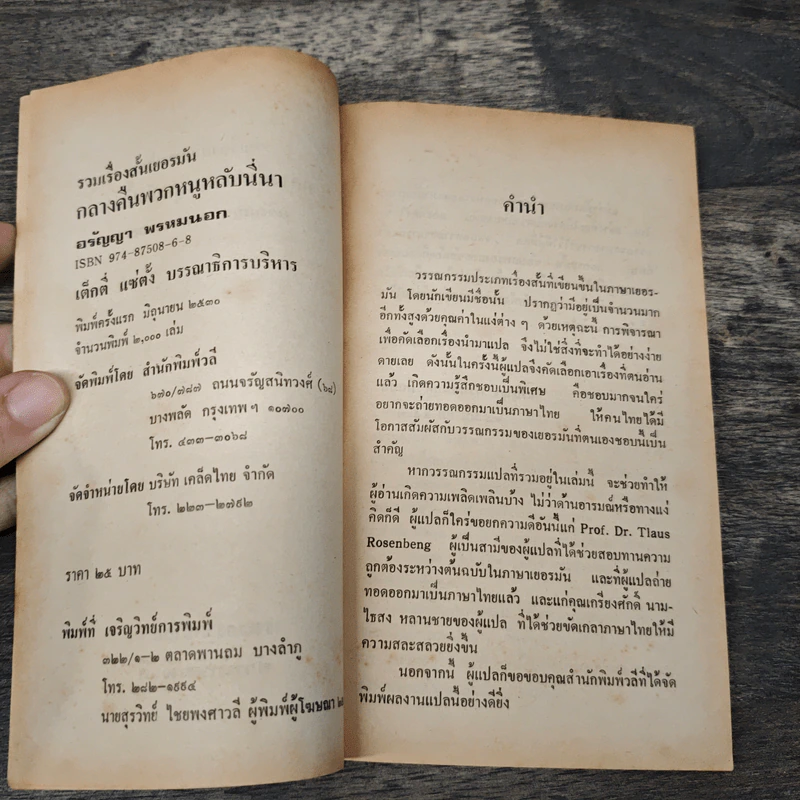 รวมเรื่องสั้นเยอรมัน
กลางคืนพวกหนูหลับนี่นา
อรัญญา พรหมนอก
ISBN 974-87508-6-8
เต็กตี่ แซ่ตั้ง บรรณาธิการบริหาร
พิมพ์ครั้งแรก มิถุนายน ๒๕๓๐
จำนวนพิมพ์ ๒,๐๐๐ เล่ม
จัดพิมพ์โดย สำนักพิมพ์วลี
๖๗๐/๗๘๗ ถนนจรัญสนิทวงศ์ (๖๘)
บางพลัด กรุงเทพ ฯ ๑๐๗๐๐
โทร. ๔๓๓—๓๐๖๘
จัดจำหน่ายโดย บริษัท เคล็ดไทย จำกัด
โทร. ๒๒๓—๒๗๙๒
ราคา ๒๕ บาท
พิมพ์ที่ เจริญวิทย์การพิมพ์
๓๒๒/๑—๒ ตลาดพานถม บางลำภู
โทร. ๒๘๒—๑๙๙๔
นายสุรวิทย์ ไชยพงศาวลี ผู้พิมพ์ผู้โฆษณา
คำนำ
วรรณกรรมประเภทเรื่องสั้นที่เขียนขึ้นในภาษาเยอร-
มัน โดยนักเขียนมีชื่อนั้น ปรากฏว่ามีอยู่เป็นจำนวนมาก
อีกทั้งสูงด้วยคุณค่าในแง่ต่าง ๆ ด้วยเหตุฉะนี้ การพิจารณา
เพื่อคัดเลือกเรื่องนำมาแปล จึงไม่ใช่สิ่งที่จะทำได้อย่างง่าย
ดายเลย ดังนั้นในครั้งนี้ผู้แปลจึงคัดเลือกเอาเรื่องที่ตนอ่าน
แล้ว เกิดความรู้สึกชอบเป็นพิเศษ คือชอบมากจนใคร่
อยากจะถ่ายทอดออกมาเป็นภาษาไทย ให้คนไทยได้มี
โอกาสสัมผัสกับวรรณกรรมของเยอรมันที่ตนเองชอบนี้เป็น
สำคัญ
หากวรรณกรรมแปลที่รวมอยู่ในเล่มนี้ จะช่วยทำให้
ผู้อ่านเกิดความเพลิดเพลินบ้าง ไม่ว่าด้านอารมณ์หรือทางแง่
คิดก็ดี ผู้แปลก็ใคร่ขอยกความดีอันนี้แก่ Prof. Dr. Tlaus
Rosenbeng ผู้เป็นสามีของผู้แปลที่ได้ช่วยสอบทานความ
ถูกต้องระหว่างต้นฉบับในภาษาเยอรมัน และที่ผู้แปลถ่าย
ทอดออกมาเป็นภาษาไทยแล้ว และแก่คุณเกรียงศักดิ์ นาม-
ไธสง หลานชายของผู้แปล ที่ได้ช่วยขัดเกลาภาษาไทยให้มี
ความสละสลวยยิ่งขึ้น
นอกจากนี้ ผู้แปลก็ขอขอบคุณสำนักพิมพ์วลีที่ได้จัด
พิมพ์ผลงานแปลนี้อย่างดียิ่ง